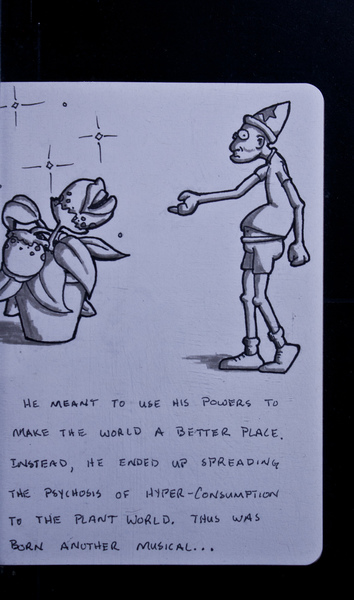 HE MEANT TO USE HIS POWERS TO
MAKE THE WORLD A BETTER PLACE.
INSTEAD, HE ENDED UP SPREADING
THE PSYCHOSIS OF HYPER-CONSUMPTION
TO THE PLANT WORLD. THUS WAS
BORN ANOTHER MUSICAL...